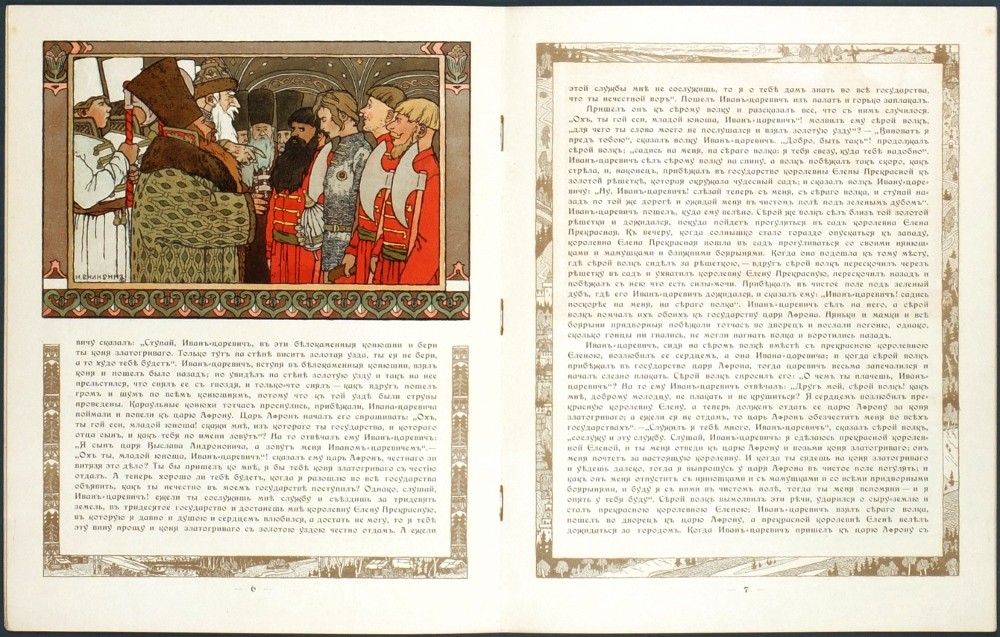 И. БИЛИБИНЪ
вичу сказалъ: „Ступай, Иванъ-царевичъ, въ эти бѣлокаменныя конюшни и бери
ты коня златогриваго. Только тутъ на стѣнѣ виситъ золотая узда, ты ея не бери,
а то худо тебѣ будетъ“. Иванъ-царевичъ, вступя въ бѣлокаменныя конюшни, взялъ
коня и пошелъ было назадъ; но увидѣлъ на стѣнѣ золотую узду и такъ на нее
прельстился, что снялъ ее съ гвоздя, и только-что снялъ — какъ вдругъ пошелъ
громъ и шумъ по всѣмъ конюшнямъ, потому что къ той уздѣ были струны
проведены. Караульные конюхи тотчасъ проснулись, прибѣжали, Ивана-царевича
поймали и повели къ царю Афрону. Царь Афронъ началъ его спрашивать: „Охъ,
ты гой еси, младой юноша! скажи мнѣ, изъ котораго ты государства, и котораго
отца сынъ, и какъ тебя по имени зовутъ“? На то отвѣчалъ ему Иванъ-царевичъ:
„Я сынъ царя Выслава Андроновича, а зовутъ меня Иваномъ-царевичемъ“.—
„Охъ ты, младой юноша, Иванъ-царевичъ“! сказалъ ему царь Афронъ, честнаго ли
витязя это дѣло? Ты бы пришелъ ко мнѣ, я бы тебѣ коня златогриваго съ честію
отдалъ. А теперь хорошо ли тебѣ будетъ, когда я разошлю во всѣ государства
объявить, какъ ты нечестно въ моемъ государствѣ поступилъ? Однако, слушай,
Иванъ-царевичъ! ежели ты сослужишь мнѣ службу и съѣздишь за тридевять
земель, въ тридесятое государство и достанешь мнѣ королевну Елену Прекрасную,
въ которую я давно и душою и сердцемъ влюбился, а достать не могу, то я тебѣ
эту вину прощу и коня златогриваго съ золотою уздою честно отдамъ. А ежели
— 6 —
этой службы мнѣ не сослужишь, то я о тебѣ дамъ знать во всѣ государства,
что ты нечестной воръ“. Пошелъ Иванъ-царевичъ изъ палатъ и горько заплакалъ.
Пришелъ онъ къ сѣрому волку и разсказалъ все, что съ нимъ случилося.
„Охъ, ты гой еси, младой юноша, Иванъ-царевичъ“! молвилъ ему сѣрой волкъ,
„для чего ты слова моего не послушался и взялъ золотую узду“? — „Виноватъ я
предъ тобою“, сказалъ волку Иванъ-царевичъ. „Добро, быть такъ“! продолжалъ
сѣрой волкъ; „садись на меня, на сѣраго волка: я тебя свезу, куда тебѣ надобно“.
Иванъ-царевичъ сѣлъ сѣрому волку на спину, а волкъ побѣжалъ такъ скоро, какъ
стрѣла, и, наконецъ, прибѣжалъ въ государство королевны Елены Прекрасной къ
золотой рѣшеткѣ, которая окружала чудесный садъ; и сказалъ волкъ Ивану-царе-
вичу: „Ну, Иванъ-царевичъ! слѣзай теперь съ меня, съ сѣраго волка, и ступай на-
задъ по той же дорогѣ и ожидай меня въ чистомъ полѣ подъ зеленымъ дубомъ“.
Иванъ-царевичъ пошелъ, куда ему велѣно. Сѣрой же волкъ сѣлъ близъ той золотой
рѣшетки и дожидался, покуда пойдетъ прогуляться въ садъ королевна Елена
Прекрасная. Къ вечеру, когда солнышко стало гораздо опускаться къ западу,
королевна Елена Прекрасная пошла въ садъ прогуливаться со своими нянюш-
ками и мамушками и ближними боярынями. Когда она подошла къ тому мѣсту,
гдѣ сѣрой волкъ сидѣлъ за рѣшеткою,— вдругъ сѣрой волкъ перескочилъ черезъ
рѣшетку въ садъ и ухватилъ королевну Елену Прекрасную, перескочилъ назадъ и
побѣжалъ съ нею что есть силы-мочи. Прибѣжалъ въ чистое поле подъ зеленый
дубъ, гдѣ его Иванъ-царевичъ дожидался, и сказалъ ему: „Иванъ-царевичъ! садись
поскорѣе на меня, на сѣраго волка“. Иванъ-царевичъ сѣлъ на него, а сѣрой
волкъ помчалъ ихъ обоихъ къ государству царя Афрона. Няньки и мамки и всѣ
боярыни придворныя побѣжали тотчасъ во дворецъ и послали погоню, однако,
сколько гонцы ни гнались, не могли нагнать волка и воротились назадъ.
Иванъ-царевичъ, сидя на сѣромъ волкѣ вмѣстѣ съ прекрасною королевною
Еленою, возлюбилъ ее сердцемъ, а она Ивана-царевича; и когда сѣрой волкъ
прибѣжалъ въ государство царя Афрона, тогда царевичъ весьма запечалился и
началъ слезно плакать. Сѣрой волкъ спросилъ его: „О чемъ ты плачешь, Иванъ-
царевичъ“? На то ему Иванъ-царевичъ отвѣчалъ: „Другъ мой, сѣрой волкъ! какъ
мнѣ, доброму молодцу, не плакать и не крушиться? Я сердцемъ возлюбилъ пре-
красную королевну Елену, а теперь долженъ отдать ее царю Афрону за коня
златогриваго; а ежели ея не отдамъ, то царь Афронъ обезчеститъ меня во всѣхъ
государствахъ“.—„Служилъ я тебѣ много, Иванъ-царевичъ“, сказалъ сѣрой волкъ,
„сослужу и эту службу. Слушай, Иванъ-царевичъ: я сдѣлаюсь прекрасной королев-
ной Еленой, и ты меня отведи къ царю Афрону и возьми коня златогриваго; онъ
меня почтетъ за настоящую королевну. И когда ты сядешь на коня златогриваго
и уѣдешь далеко, тогда я выпрошусь у царя Афрона въ чистое поле погулять; и
какъ онъ меня отпуститъ съ нянюшками и съ мамушками и со всѣми придворными
боярынями, и буду я съ ними въ чистомъ полѣ, тогда ты меня вспомяни — и я
опять у тебя буду“. Сѣрой волкъ вымолвилъ эти рѣчи, ударился о сыру-землю и
сталъ прекрасною королевною Еленою; Иванъ-царевичъ взялъ сѣраго волка,
пошелъ во дворецъ къ царю Афрону, а прекрасной королевнѣ Еленѣ велѣлъ
дожидаться за городомъ. Когда Иванъ-царевичъ пришелъ къ царю Афрону съ
— 7 —